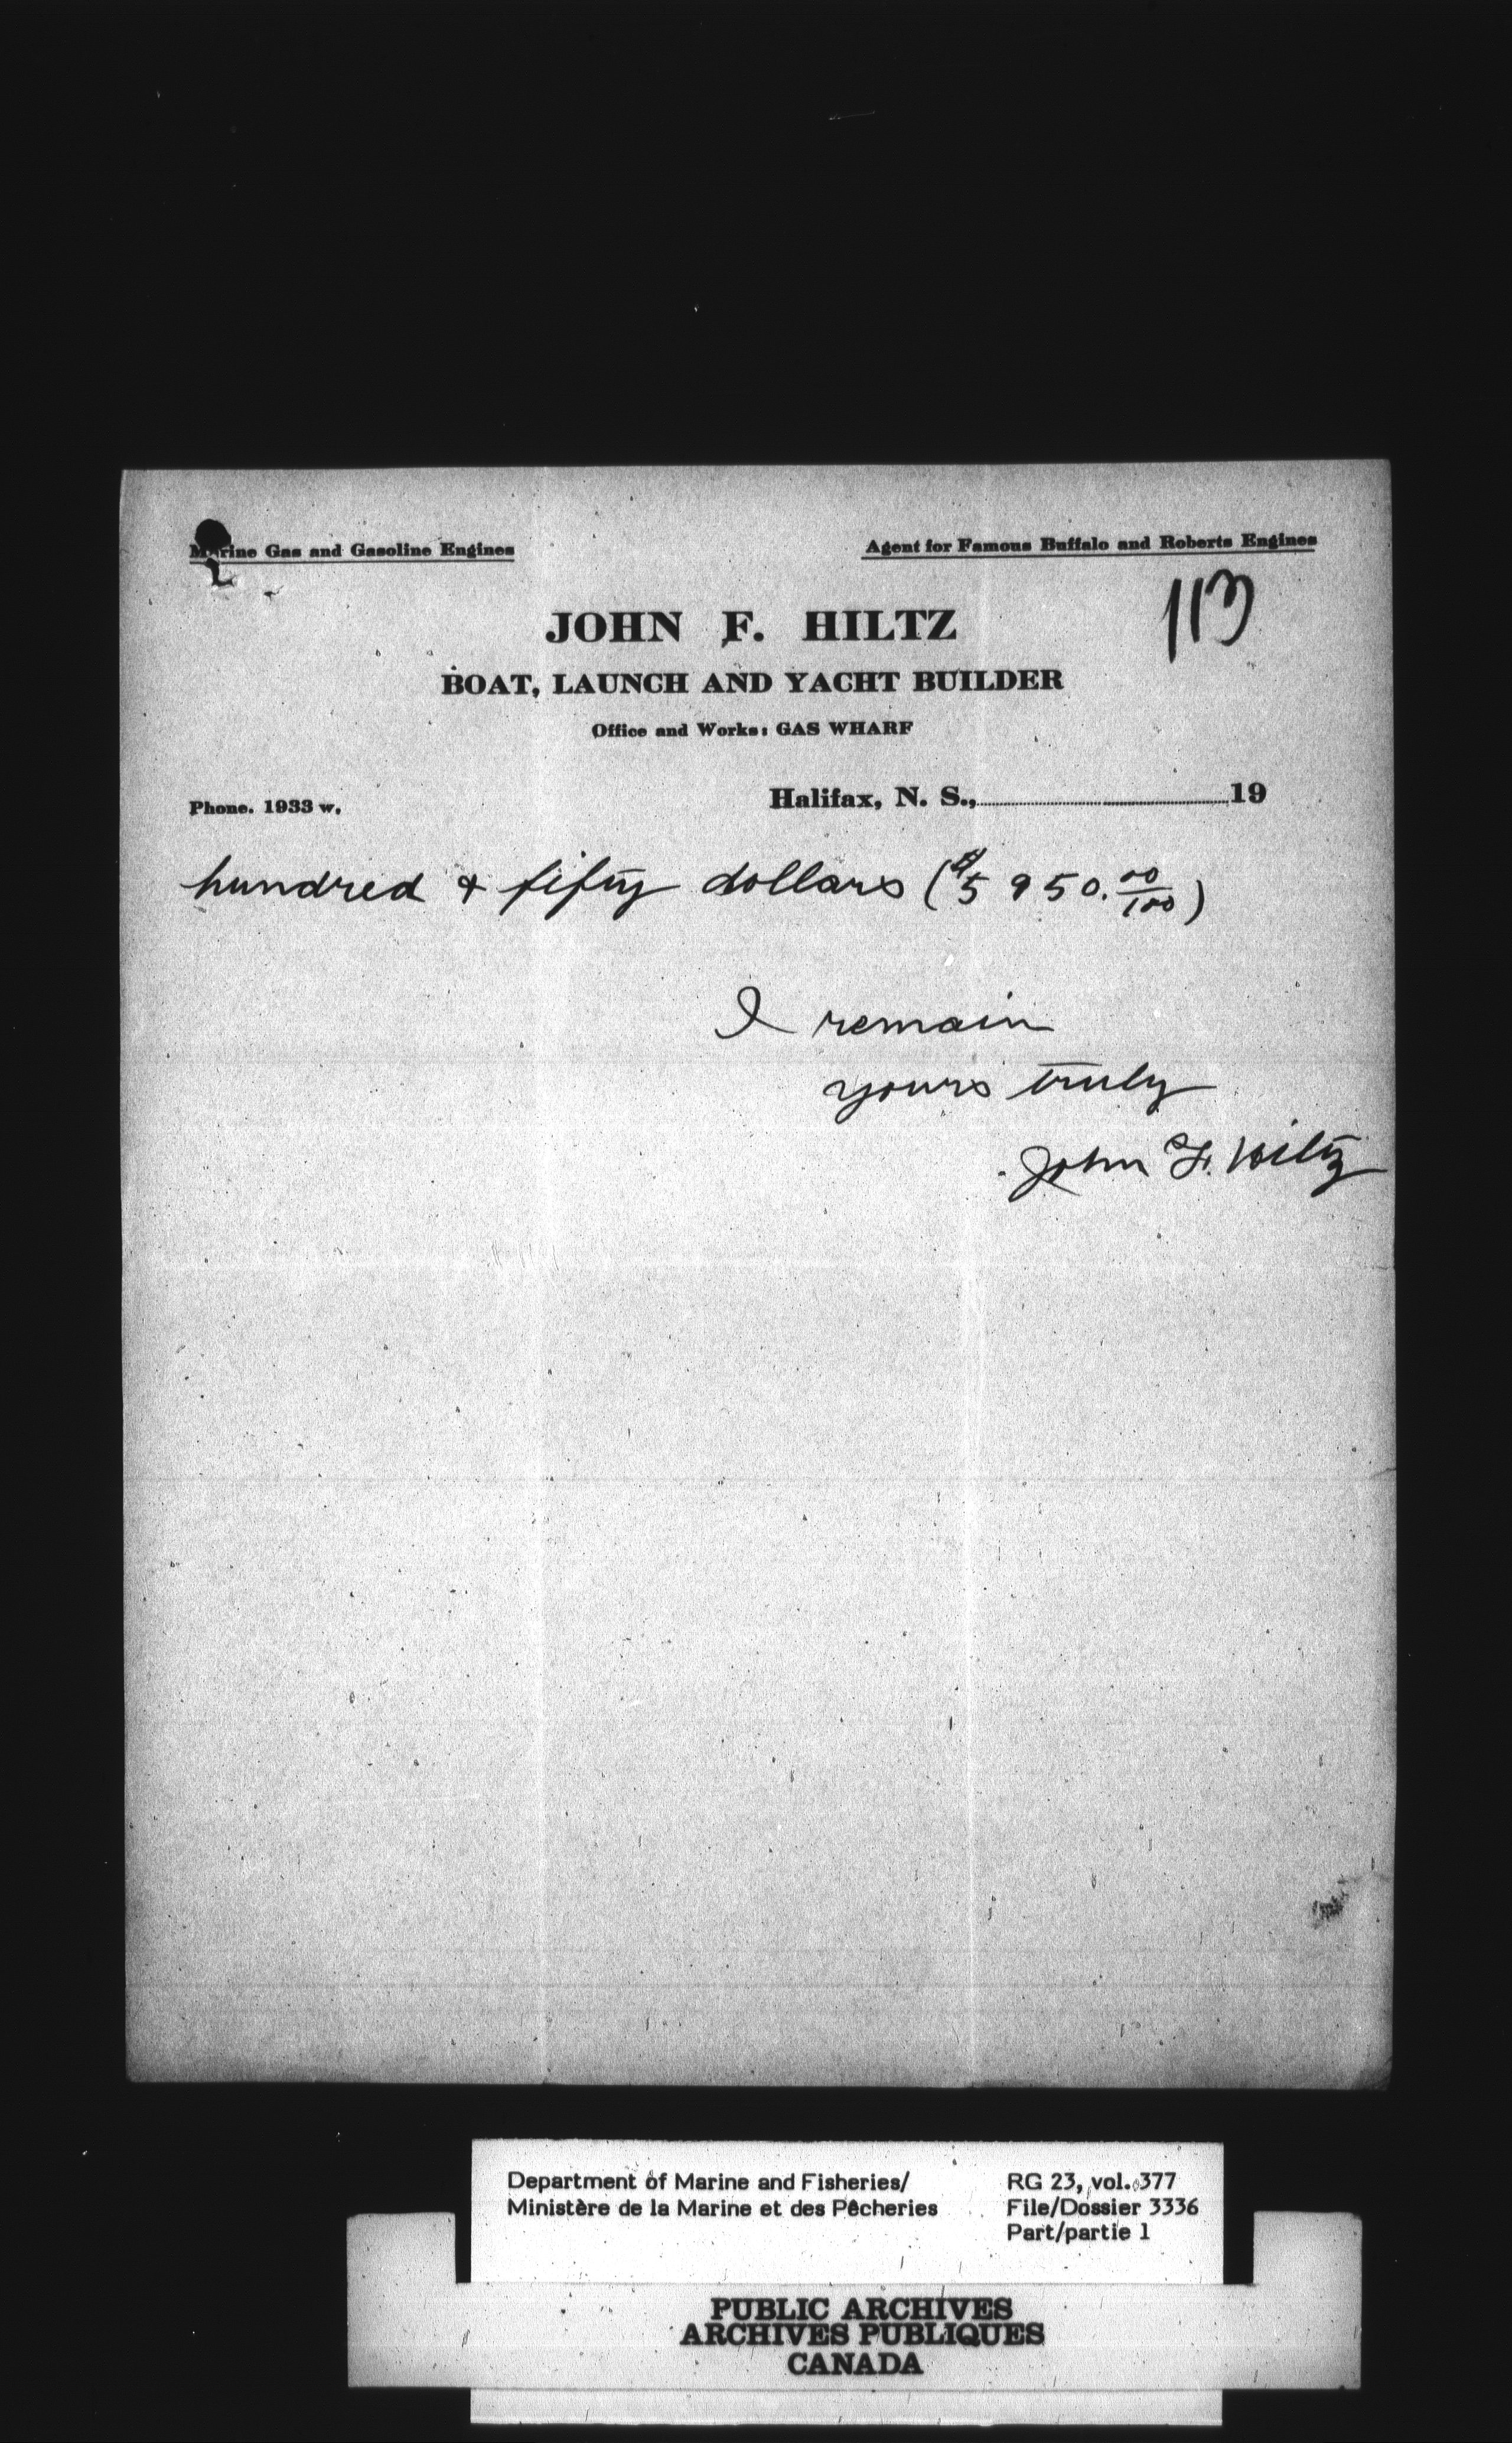 Marine Gas and Gasoline Engines
Agent for Famous Buffalo and Roberts Engines
113
JOHN F. HILTZ
BOAT, LAUNCH AND YACHT BUILDER
Office and Works: GAS WHARF
Phone. 1933 w.
Halifax, N. S.,..........19
hundred & fifty dollars ($5950.00/100)
I remain
yours truly
John F. Hiltz
Department of Marine and Fisheries/
Ministère de la Marine et des Pêcheries
RG 23, vol. 377
File/Dossier 3336
Part/partie 1
PUBLIC ARCHIVES
ARCHIVES PUBLIQUES
CANADA